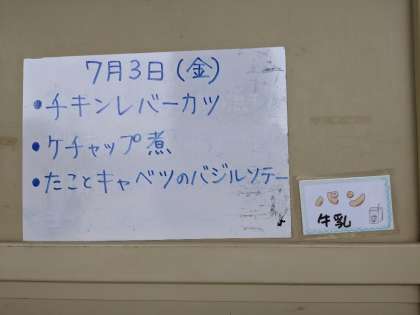 7月3日(金)
•チキンレバーカツ
•ケチャップ煮
•たことキャベツのバジルソテー
パン
牛乳